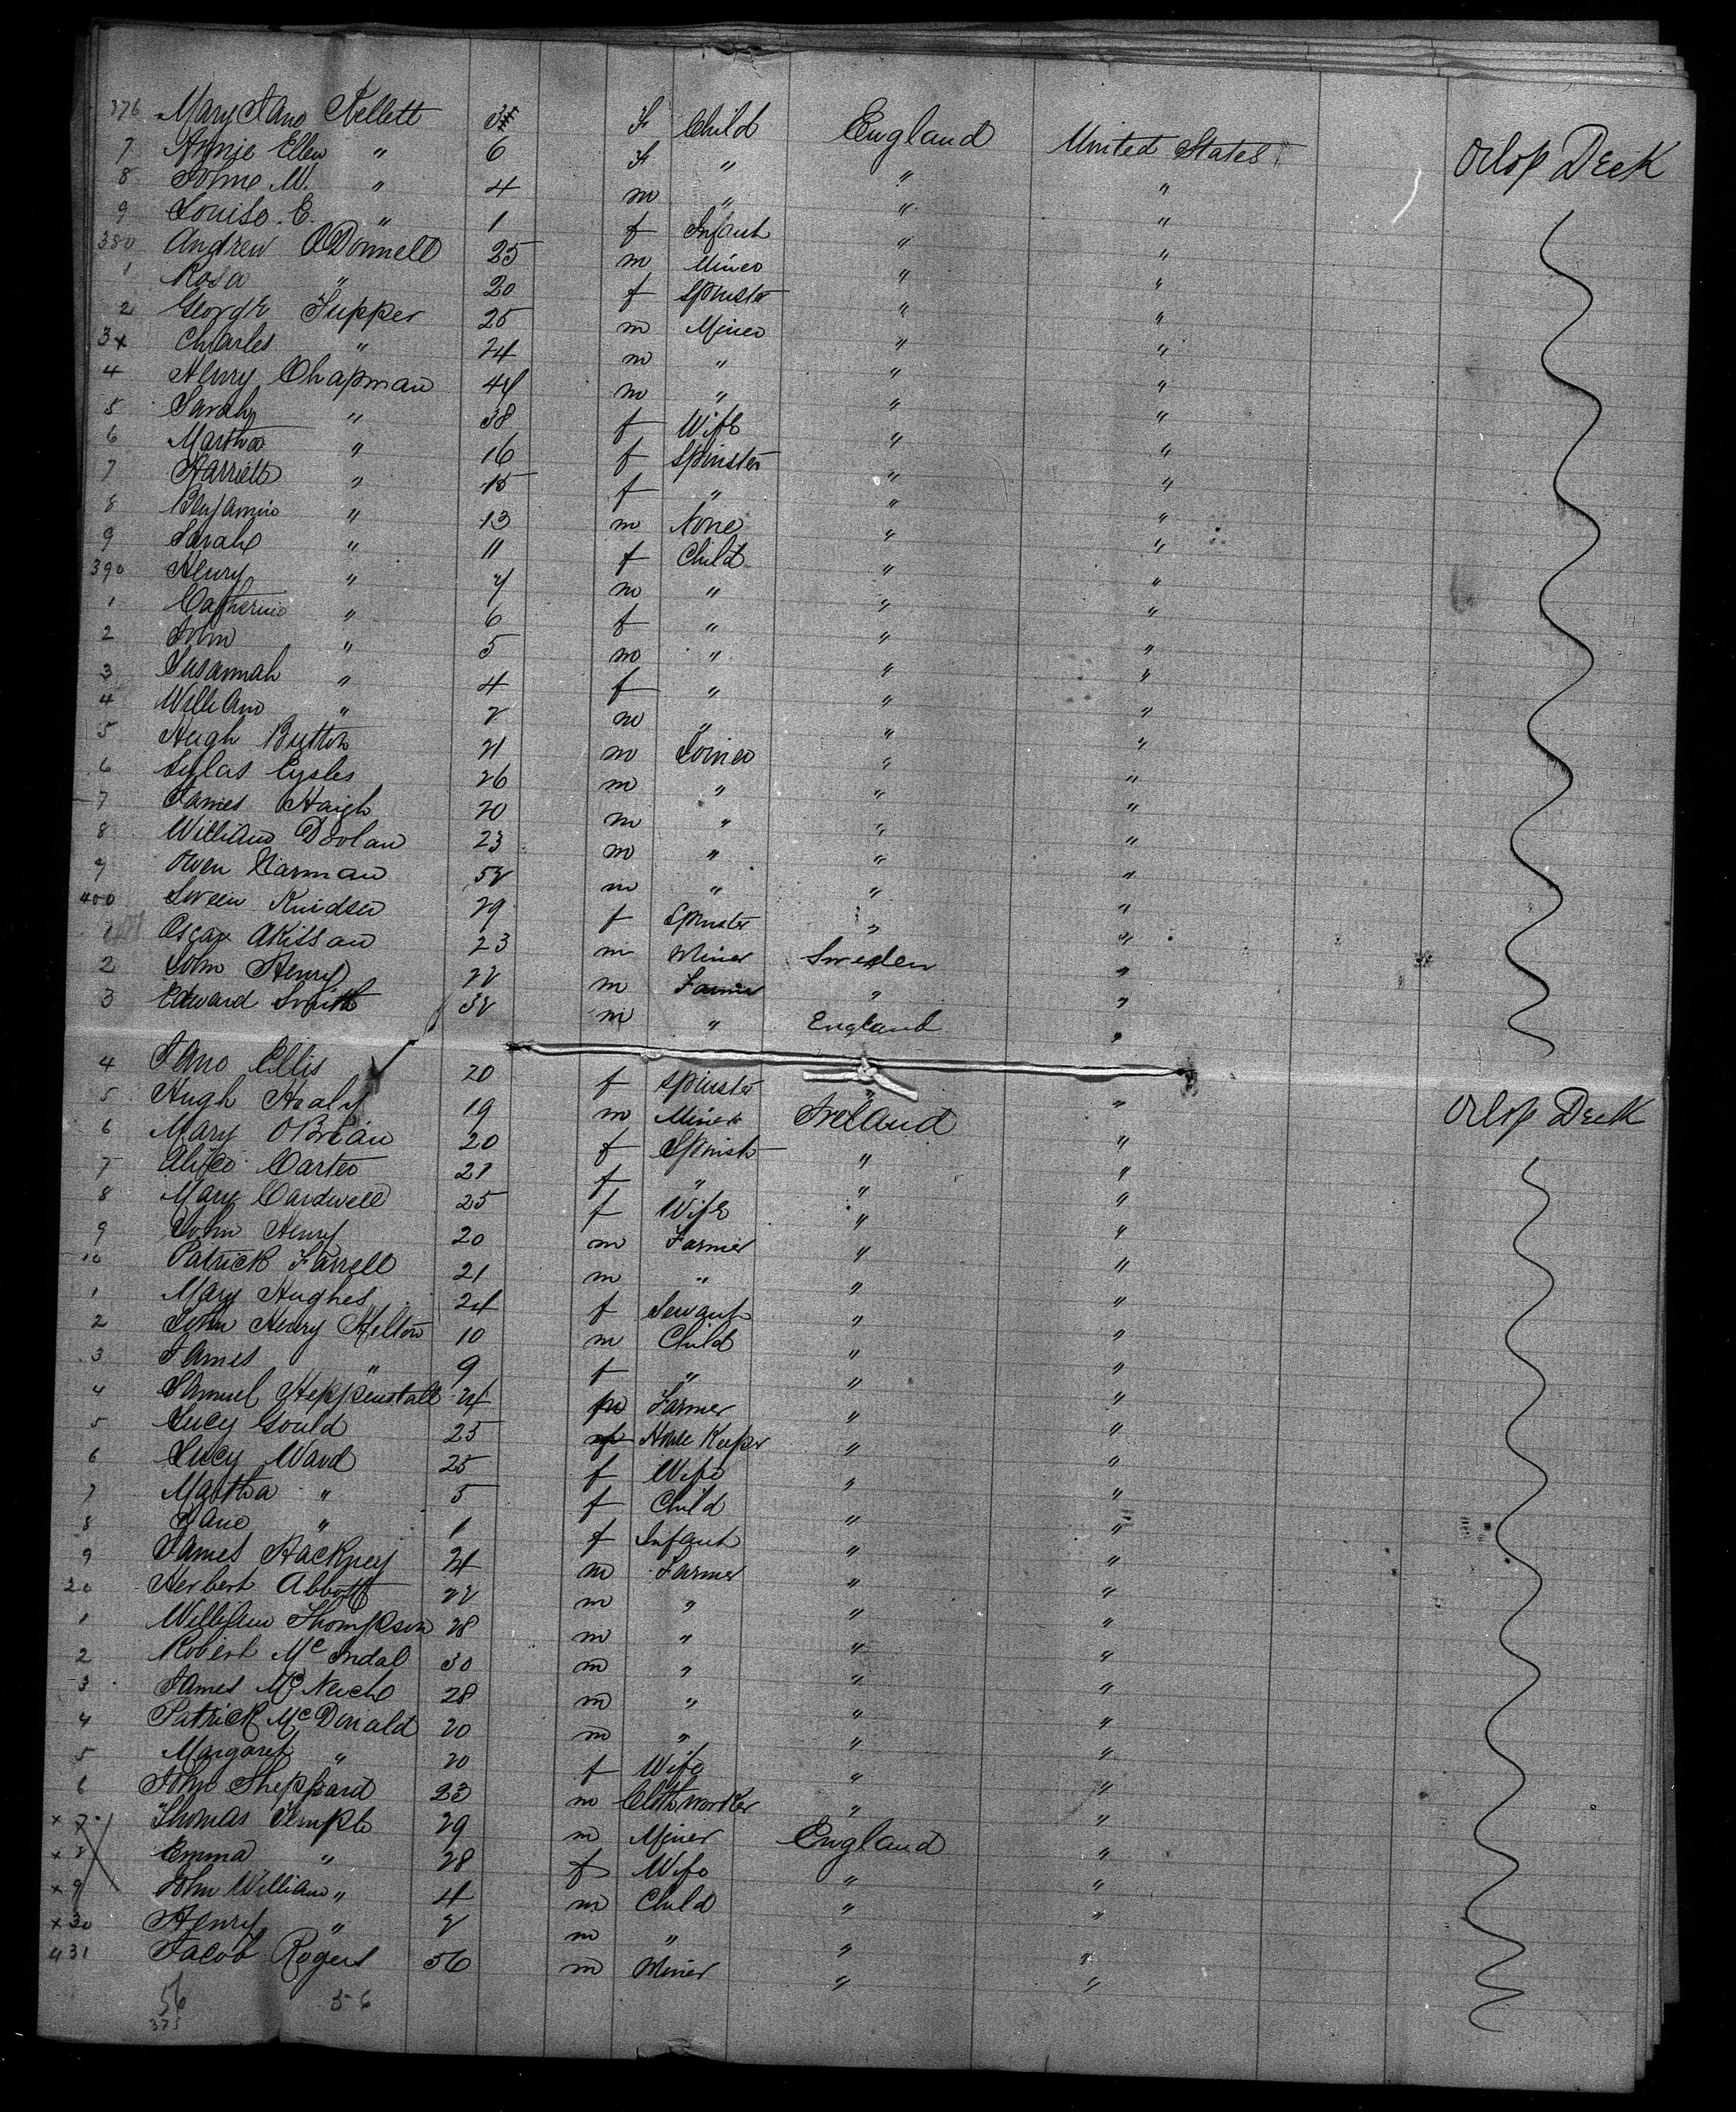 376 Mary Jane Kellett F Child England United States Orlop Deck
7 Annie Ellen " 6 F " " "
8 John W. " 4 m " " "
9 Louise E. " 1 f Infant " "
380 Andrew ODonnell 25 m Miner " "
1 Rosa " 20 f Spinster " "
2 George Tupper 25 m Miner " "
3x Charles " 24 m " " "
4 Henry Chapman 44 m " " "
5 Sarah " 38 f Wife " "
6 Martha " 16 f Spinster " "
7 Harriett " 15 f " " "
8 Benjamin " 13 m None " "
9 Sarah " 11 f Child " "
390 Henry " 7 m " " "
1 Catherine " 6 f " " "
2 John " 5 m " " "
3 Susannah " 4 f " " "
4 William " 2 m " " "
5 Hugh Button 21 m Joiner " "
6 Sylas Eysles 26 m " " "
7 James Haigh 20 m " " "
8 William Doolan 23 m " " "
9 Owen Carman 52 m " " "
400 Sween Knidsen 29 f Spinster " "
1 Oscar Akissan 23 m Miner Sweden "
2 John Henry 22 m Farmer " "
3 Edward Smith 32 m " England "
4 Jane Ellis 20 f Spinster " "
5 Hugh Healy 19 m Miner Ireland " Orlop Deck
6 Mary OBrian 20 f Spinstr " "
7 Alice Carter 21 f " " "
8 Mary Cardwell 25 f Wife " "
9 John Henry 20 m Farmer " "
10 Patrick Farrell 21 m " " "
1 Mary Hughes 24 f Servant " "
2 John Henry Melton 10 m Child " "
3 James " 9 f " " "
4 Samuel Heppenstall 24 m Farmer " "
5 Lucy Gould 25 f House Keeper " "
6 Lucy Ward 25 f Wife " "
7 Martha " 5 f Child " "
8 Jane " 1 f Infant " "
9 James Hackney 24 m Farmer " "
20 Herbert Abbott 22 m " " "
1 William Thompson 28 m " " "
2 Robert McIndal 30 m " " "
3 James 28 m " " "
4 Patrick McDonald 20 m " " "
5 Margaret " 20 f Wife " "
6 John Sheppard 23 m Cloth worker " "
x 7 Thomas Temple 29 m Miner England "
x 8 Emma " 28 f Wife " "
x 9 John William " 4 m Child " "
x 30 Henry " 2 m " " "
431 Jacob Rogers 56 m Miner " "
56 56
375